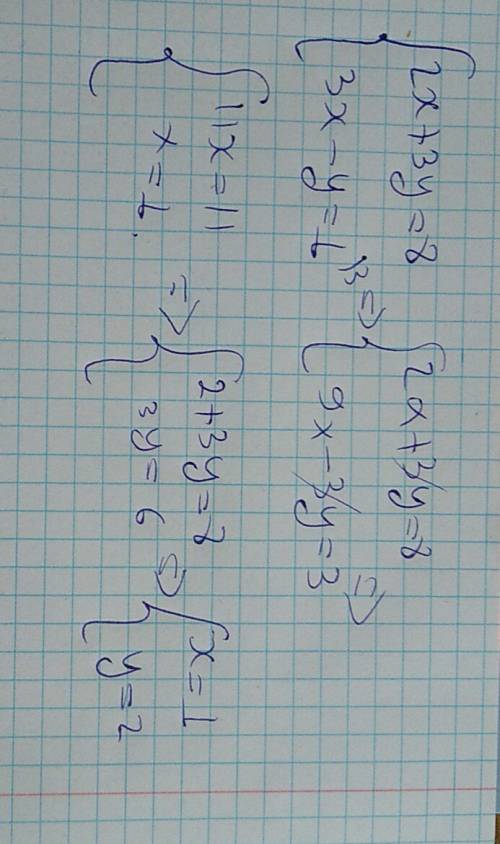 2x+3y=8
3x-y=1 |·3 => 2x+3y=8
9x-3y=3 =>
11x=11
x=1. => 2+3y=8
3y=6 => x=1
y=2